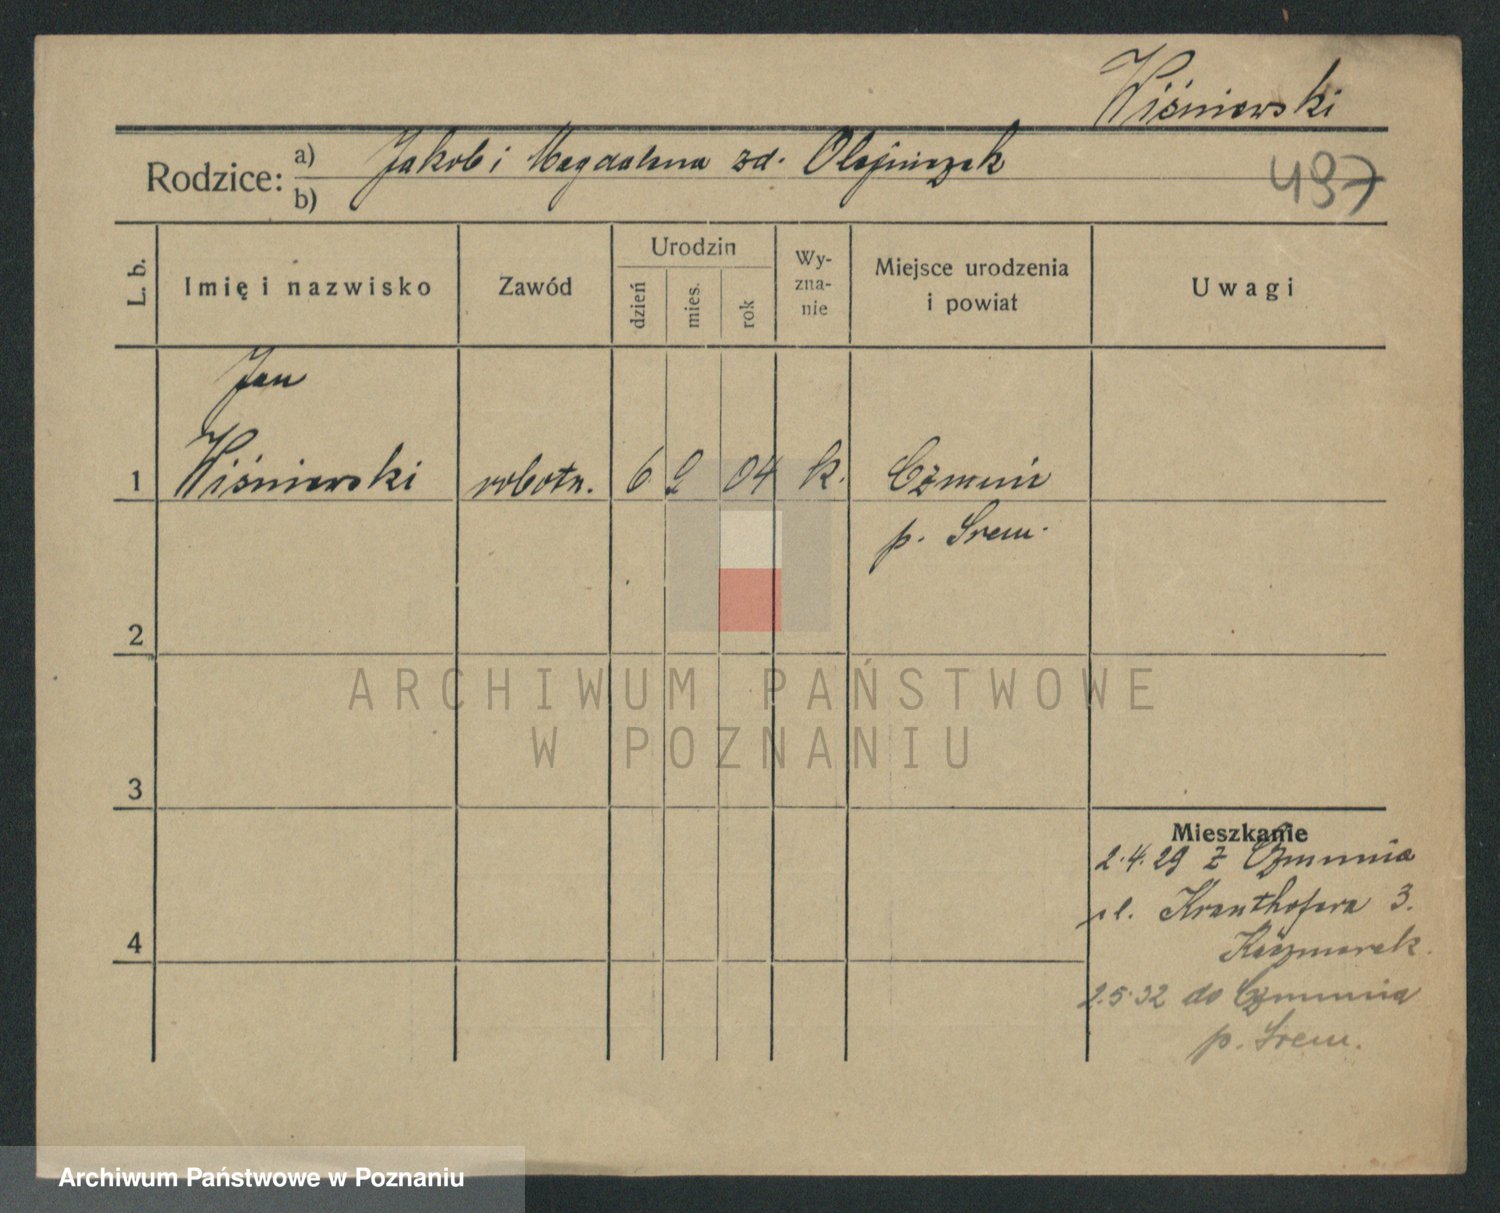 Wiśniewski
Rodzice: a) Jakób i Magdalena zd. Olejniczak
b)
497
L. b.
Imię i nazwisko
Zawód
Urodzin
dzień
mies.
rok
Wy-
zna-
nie
Miejsce urodzenia
i powiat
Uwagi
Jan
1 Wiśniewski robotn. 6 2 04 k. Czmoń
p. Śrem.
2
3
4
Mieszkanie
2.4.29 z Czmonia
ul. Krauthofera 3.
Kaczmarek.
2.5.32 do Czmonia
p. Śrem.
ARCHIWUM PAŃSTWOWE
W POZNANIU
Archiwum Państwowe w Poznaniu